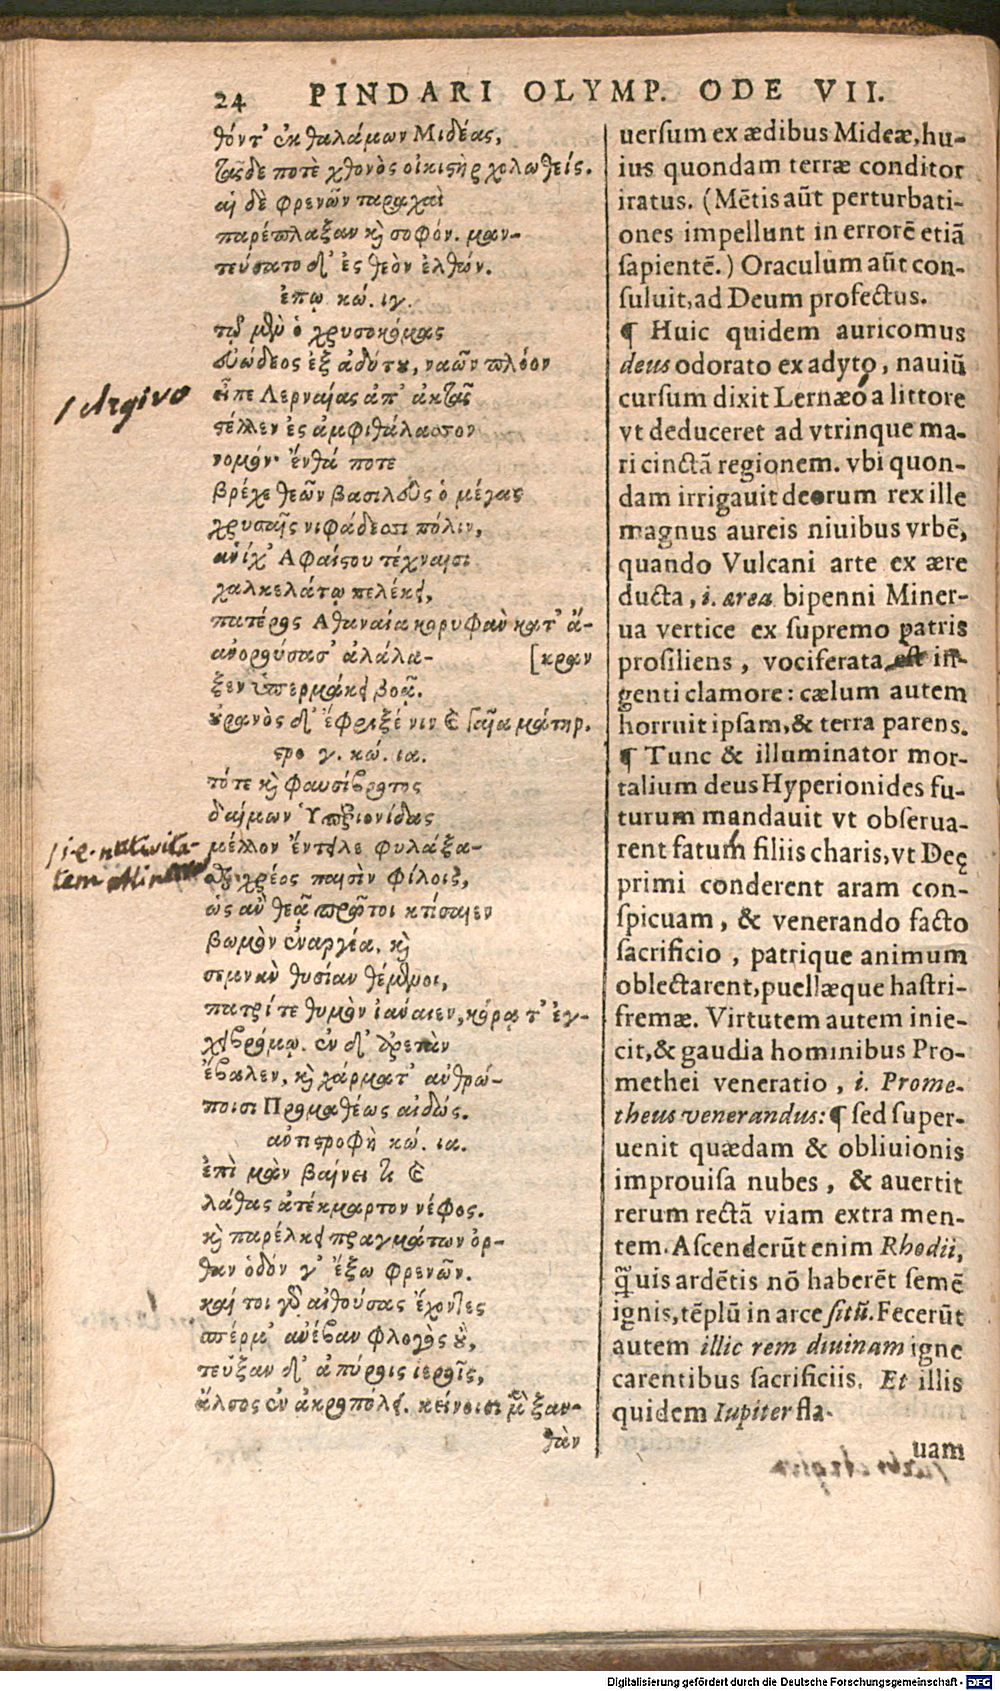 24 PINDARI OLYMP. ODE VII.
θόντ' ἐκ θαλάμων Μιδέας,
τᾶσδε ποτὲ χθονὸς οἰκιστὴρ χολωθείς.
αἱ δὲ φρενῶν ταραχαὶ
παρέπλαξαν καὶ σοφόν. μαν-
τεύσατο δ' ἐς θεὸν ἐλθών.
ἐπῳ. κώ. ιγ.
τῷ μὲν ὁ χρυσοκόμας
εὐώδεος ἐξ ἀδύτου, ναῶν πλόον
εἶπε Λερναίας ἀπ' ἀκτᾶς
στέλλεν ἐς ἀμφιθάλασσον
νομόν· ἔνθά ποτε
βρέχε θεῶν βασιλεὺς ὁ μέγας
χρυσαῖς νιφάδεσσι πόλιν,
ἁνίχ' Ἁφαίστου τέχναισι
χαλκελάτῳ πελέκει,
πατέρος Ἀθαναία κορυφὰν κατ' ἄ-
ἀνορούσασ' ἀλάλα- [κραν
ξεν ὑπερμάκει βοᾷ.
οὐρανὸς δ' ἔφριξέ νιν καὶ γαῖα μάτηρ.
στρο. γ. κώ. ια.
τότε καὶ φαυσίβροτος
δαίμων Ὑπεριονίδας
μέλλον ἔντειλε φυλάξα-
σθαι χρέος παισὶν φίλοις,
ὡς ἂν θεᾷ πρῶτοι κτίσαιεν
βωμὸν ἐναργέα, καὶ
σεμνὰν θυσίαν θέμενοι,
πατρί τε θυμὸν ἰάναιεν, κόρᾳ τ' ἐγ-
χειβρόμῳ. ἐν δ' ἀρετὰν
ἔβαλεν, καὶ χάρματ' ἀνθρώ-
ποισι Προμαθέως αἰδώς.
ἀντιστροφὴ κώ. ια.
ἐπὶ μὰν βαίνει τι καὶ
λάθας ἀτέκμαρτον νέφος.
καὶ παρέλκει πραγμάτων ὀρ-
θὰν ὁδόν γ' ἔξω φρενῶν.
καί τοι γὰρ αἰθούσας ἔχοντες
σπέρμ' ἀνέβαν φλογὸς οὔ,
τεῦξαν δ' ἀπύροις ἱεροῖς,
ἄλσος ἐν ἀκροπόλει. κείνοισι μὲν ξαν-
θὰν
uersum ex ædibus Mideæ, hu-
ius quondam terræ conditor
iratus. (Mētis aūt perturbati-
ones impellunt in errorē etiā
sapientē.) Oraculum aūt con-
suluit, ad Deum profectus.
¶ Huic quidem auricomus
deus odorato ex adyto, nauiū
cursum dixit Lernæo a littore
vt deduceret ad vtrinque ma-
ri cinctā regionem. vbi quon-
dam irrigauit deorum rex ille
magnus aureis niuibus vrbē,
quando Vulcani arte ex ære
ducta, i. ærea bipenni Miner-
ua vertice ex supremo patris
prosiliens, vociferata est in-
genti clamore: cælum autem
horruit ipsam, & terra parens.
¶ Tunc & illuminator mor-
talium deus Hyperionides fu-
turum mandauit vt obserua-
rent fatum filiis charis, vt Deę
primi conderent aram con-
spicuam, & venerando facto
sacrificio, patrique animum
oblectarent, puellæque hastri-
fremæ. Virtutem autem inie-
cit, & gaudia hominibus Pro-
methei veneratio, i. Prome-
theus venerandus: ¶ sed super-
uenit quædam & obliuionis
improuisa nubes, & auertit
rerum rectā viam extra men-
tem. Ascenderūt enim Rhodii,
quis ardētis nō haberēt semē
ignis, tēplū in arce sitū. Fecerūt
autem illic rem diuinam igne
carentibus sacrificiis. Et illis
quidem Iupiter fla-
uam
/ Argivo
/ i.e. nativita-
tem Minervae
Digitalisierung gefördert durch die Deutsche Forschungsgemeinschaft - DFG